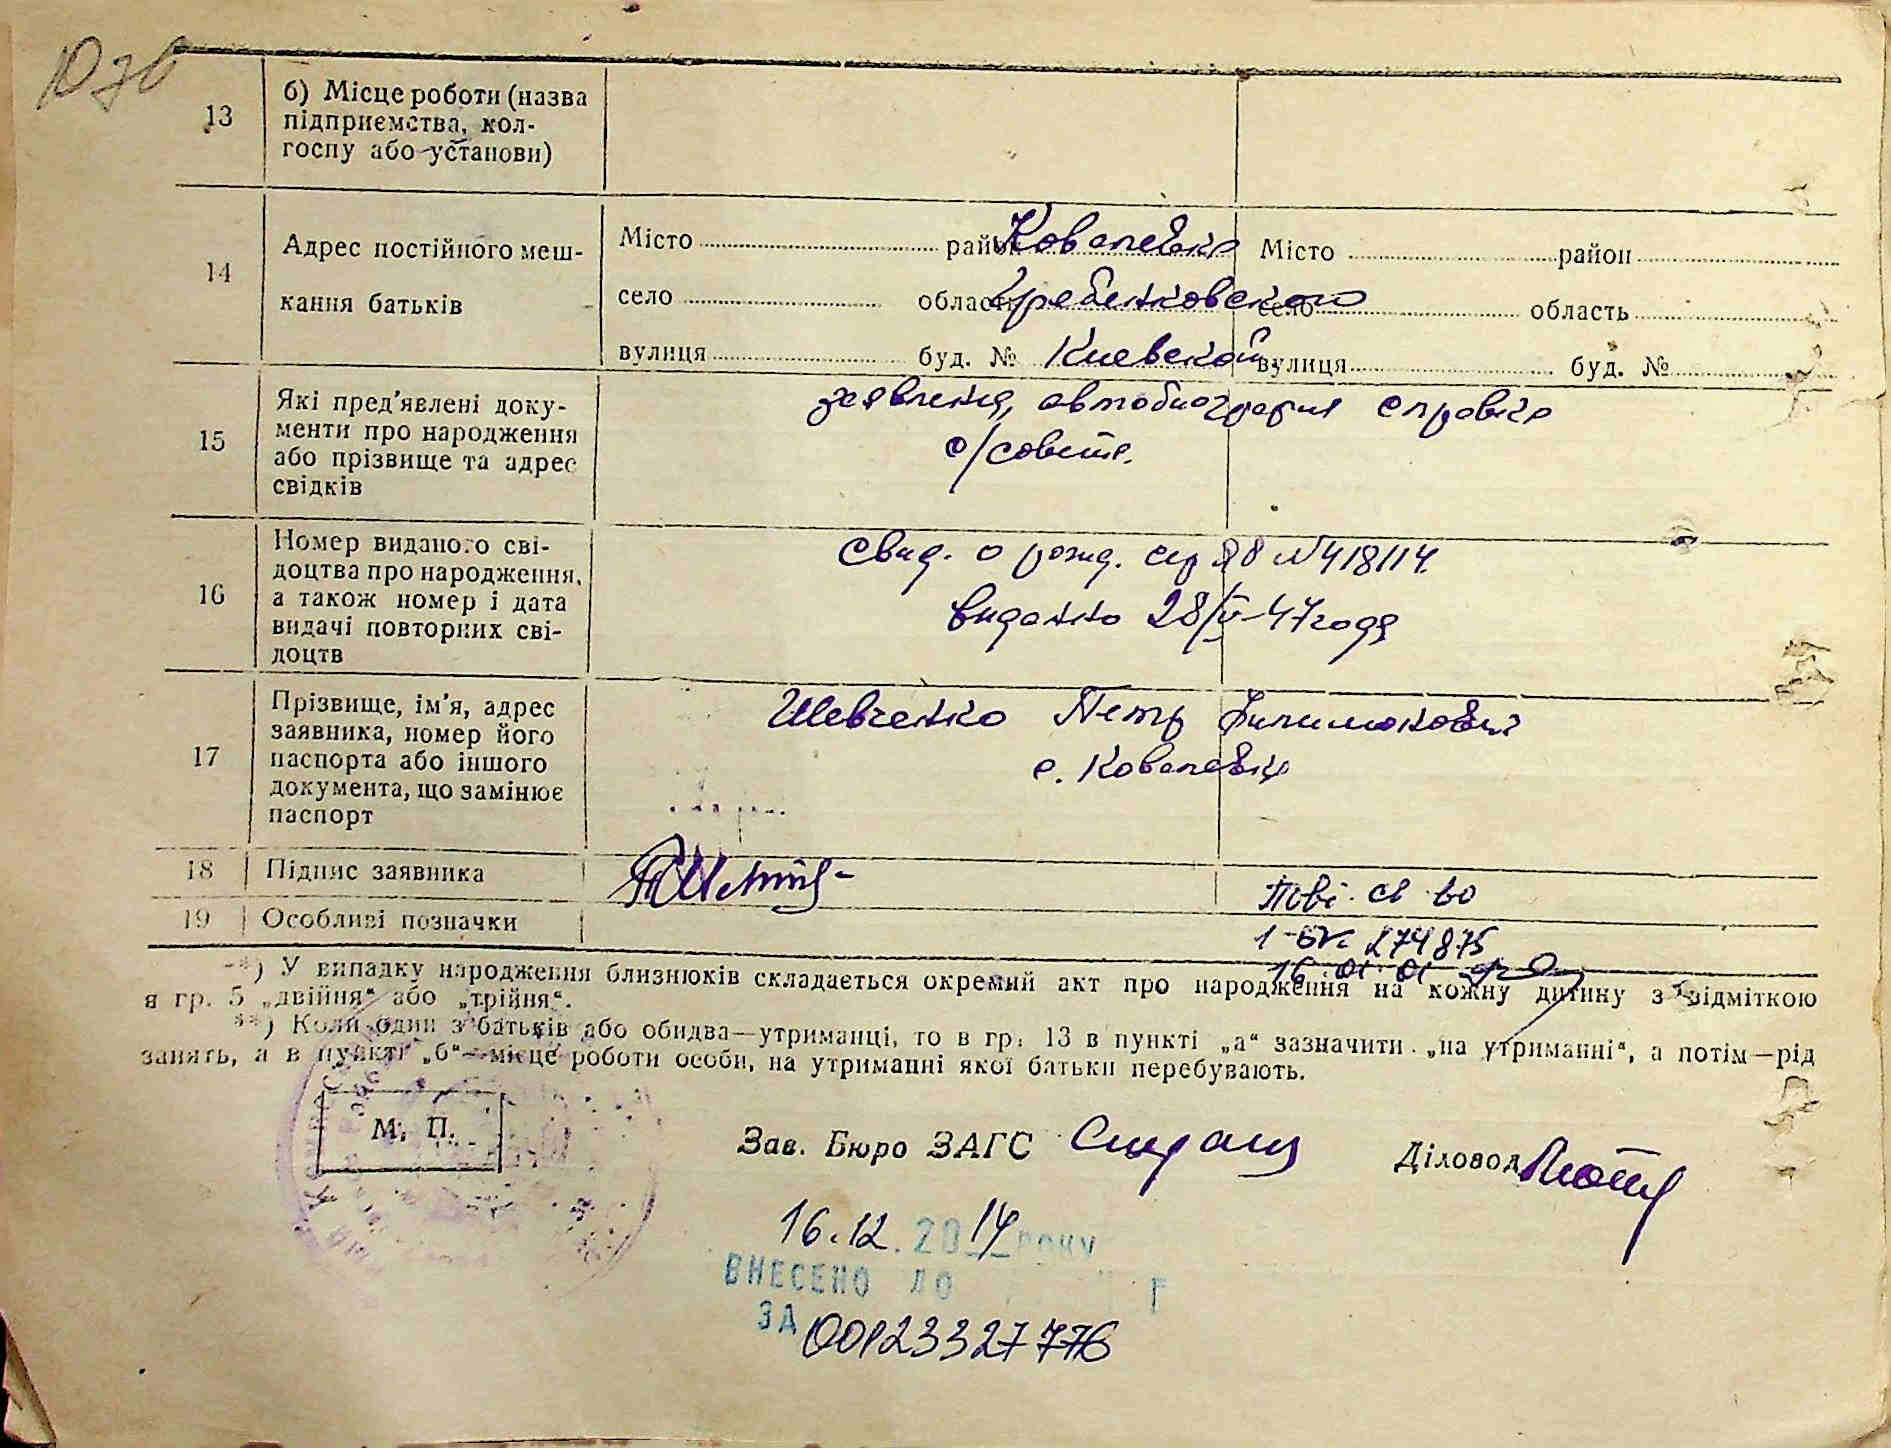 13 б) Місце роботи (назва
підприємства, кол-
госпу або установи)
14 Адрес постійного меш-
кання батьків
Місто район Ковалевка Місто район
село область Гребенковского село область
вулиця буд. № Киевской вулиця буд. №
15 Які пред'явлені доку-
менти про народження
або прізвище та адрес
свідків
заявление, автобиография справка
с/совета.
16 Номер виданого сві-
доцтва про народження,
а також номер і дата
видачі повторних сві-
доцтв
свид. о рожд. сер N 418114.
выданно 28/V-47 года
17 Прізвище, ім'я, адрес
заявника, номер його
паспорта або іншого
документа, що замінює
паспорт
Шевченко Петр Филимонович
с. Ковалевка
18 Підпис заявника
19 Особливі позначки
св-во
274875
16 01 01
**) У випадку народження близнюків складається окремий акт про народження на кожну дитину з відміткою
в гр. 5 „двійня“ або „трійня“.
**) Коли один з батьків або обидва—утриманці, то в гр. 13 в пункті „а“ зазначити „на утриманні“, а потім—рід
занять, а в пункті „б“—місце роботи особи, на утриманні якої батьки перебувають.
М. П.
Зав. Бюро ЗАГС
Діловод
16.12.2014 року
ВНЕСЕНО ДО
ЗА 00123327776